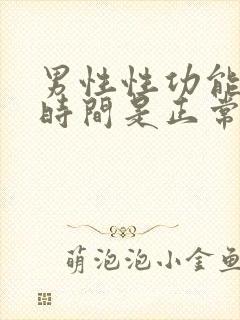 男性性功能
時間是正常
萌泡泡小金鱼